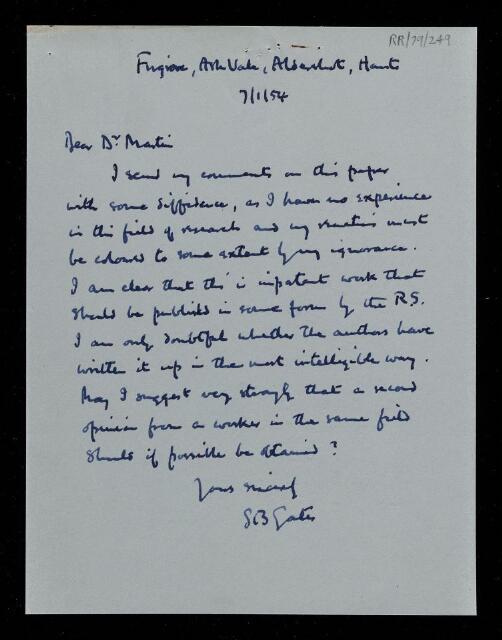 RR/79/249
Ash Vale, Aldershot, Hants
7/1/54
Dear Dr Martin
I send my comments on this paper
with some diffidence, as I have no experience
in this field of research and my reactions must
be coloured to some extent by my ignorance.
I am clear that this is important work that
should be published in some form by the R.S.
I am only doubtful whether the authors have
written it up in the most intelligible way.
May I suggest very strongly that a second
opinion from a worker in the same field
should if possible be obtained?
Yours sincerely
S B Gates